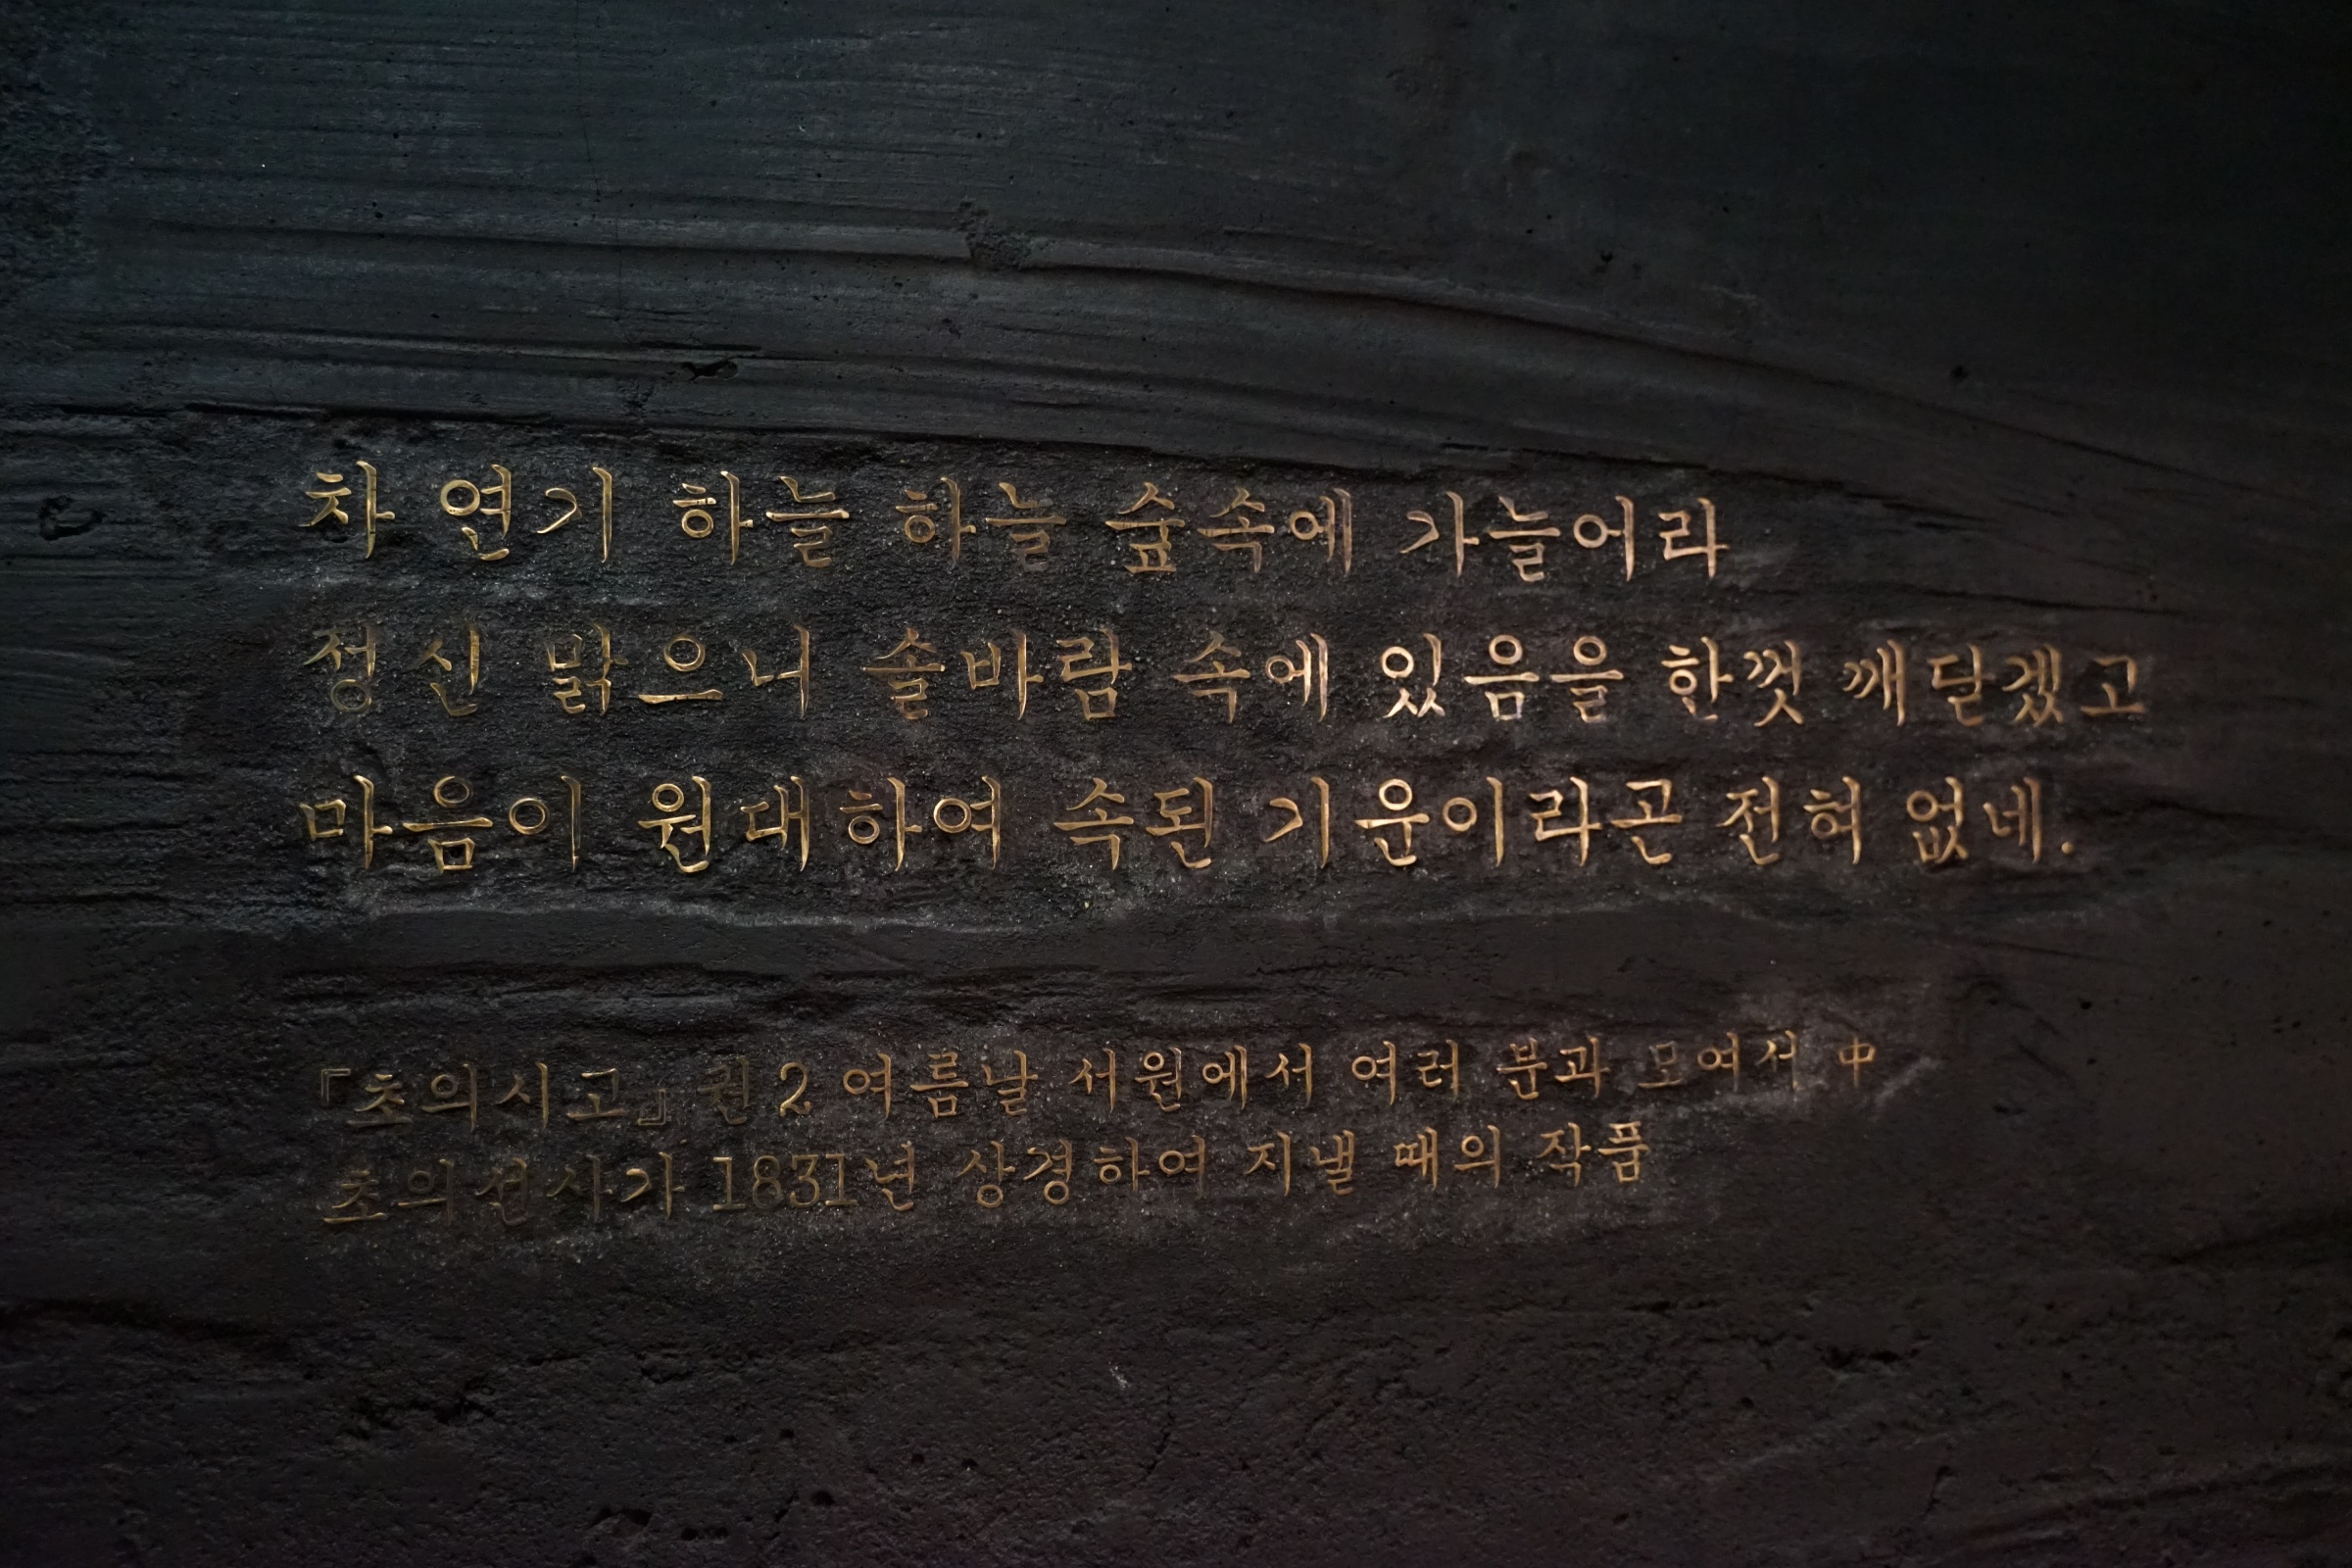 차 연기 하늘 하늘 숲속에 가늘어라
정신 맑으니 솔바람 속에 있음을 한껏 깨닫겠고
마음이 원대하여 속된 기운이라곤 전혀 없네.
『초의시고』 권 2 여름날 서원에서 여러 분과 모여서 中
초의선사가 1831년 상경하여 지낼 때의 작품